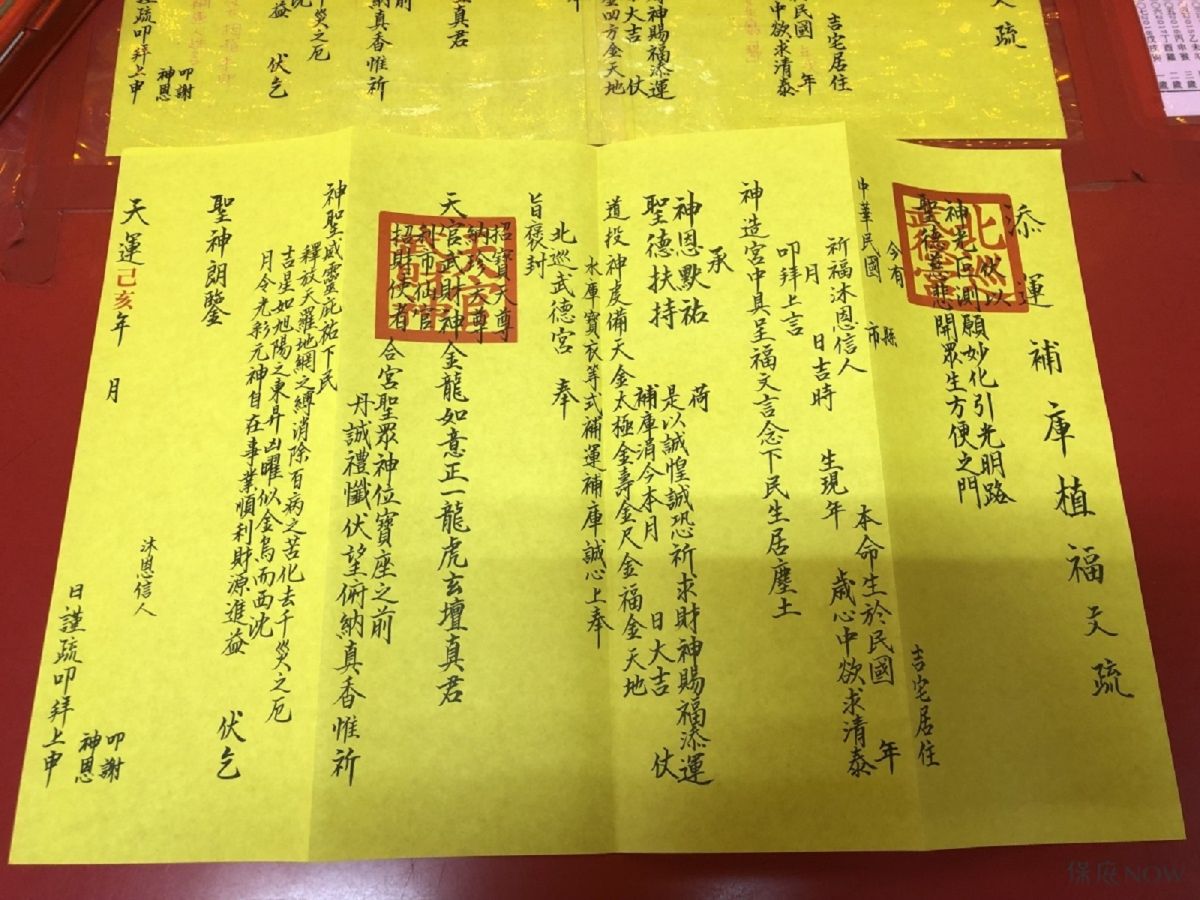 添運補庫植福文疏
伏以
神光叵測願妙化引光明路
聖德慈悲開眾生方便之門
今有
中華民國 縣市 吉宅居住
祈福沐恩信人 本命生於民國 年
月 日吉時 生現年 歲心中欲求清泰
叩拜上言
神造宮中具呈福文言念下民生居塵土
承
神恩默祐 荷
聖德扶持 是以誠惶誠恐祈求財神賜福添運
補庫涓今本月 日大吉 仗
道投神虔備天金太極金壽金尺金福金天地
水庫寶衣等式補運補庫誠心上奉
旨褒封
北巡武德宮 奉
招寶天尊
納珍天尊
天官武財神金龍如意正一龍虎玄壇真君
利市仙官
招財使者
合宮聖眾神位寶座之前
丹誠禮懺伏望俯納真香惟祈
神聖威靈庇祐下民
釋放天羅地網之縛消除百病之苦化去千災之厄
吉星如旭陽之東昇凶曜似金烏而西沈
月令光彩元神自在事業順利財源進益 伏乞
聖神朗鑒
沐恩信人
天運己亥年 月 日謹疏叩拜上申
叩謝
神恩
文疏
吉宅居住
民國 年
中欲求清泰
財神賜福添運
大吉 仗
真君
之前
真香惟祈
千災之厄
益 伏乞
疏叩拜上申
叩謝
神恩
保庇NOW